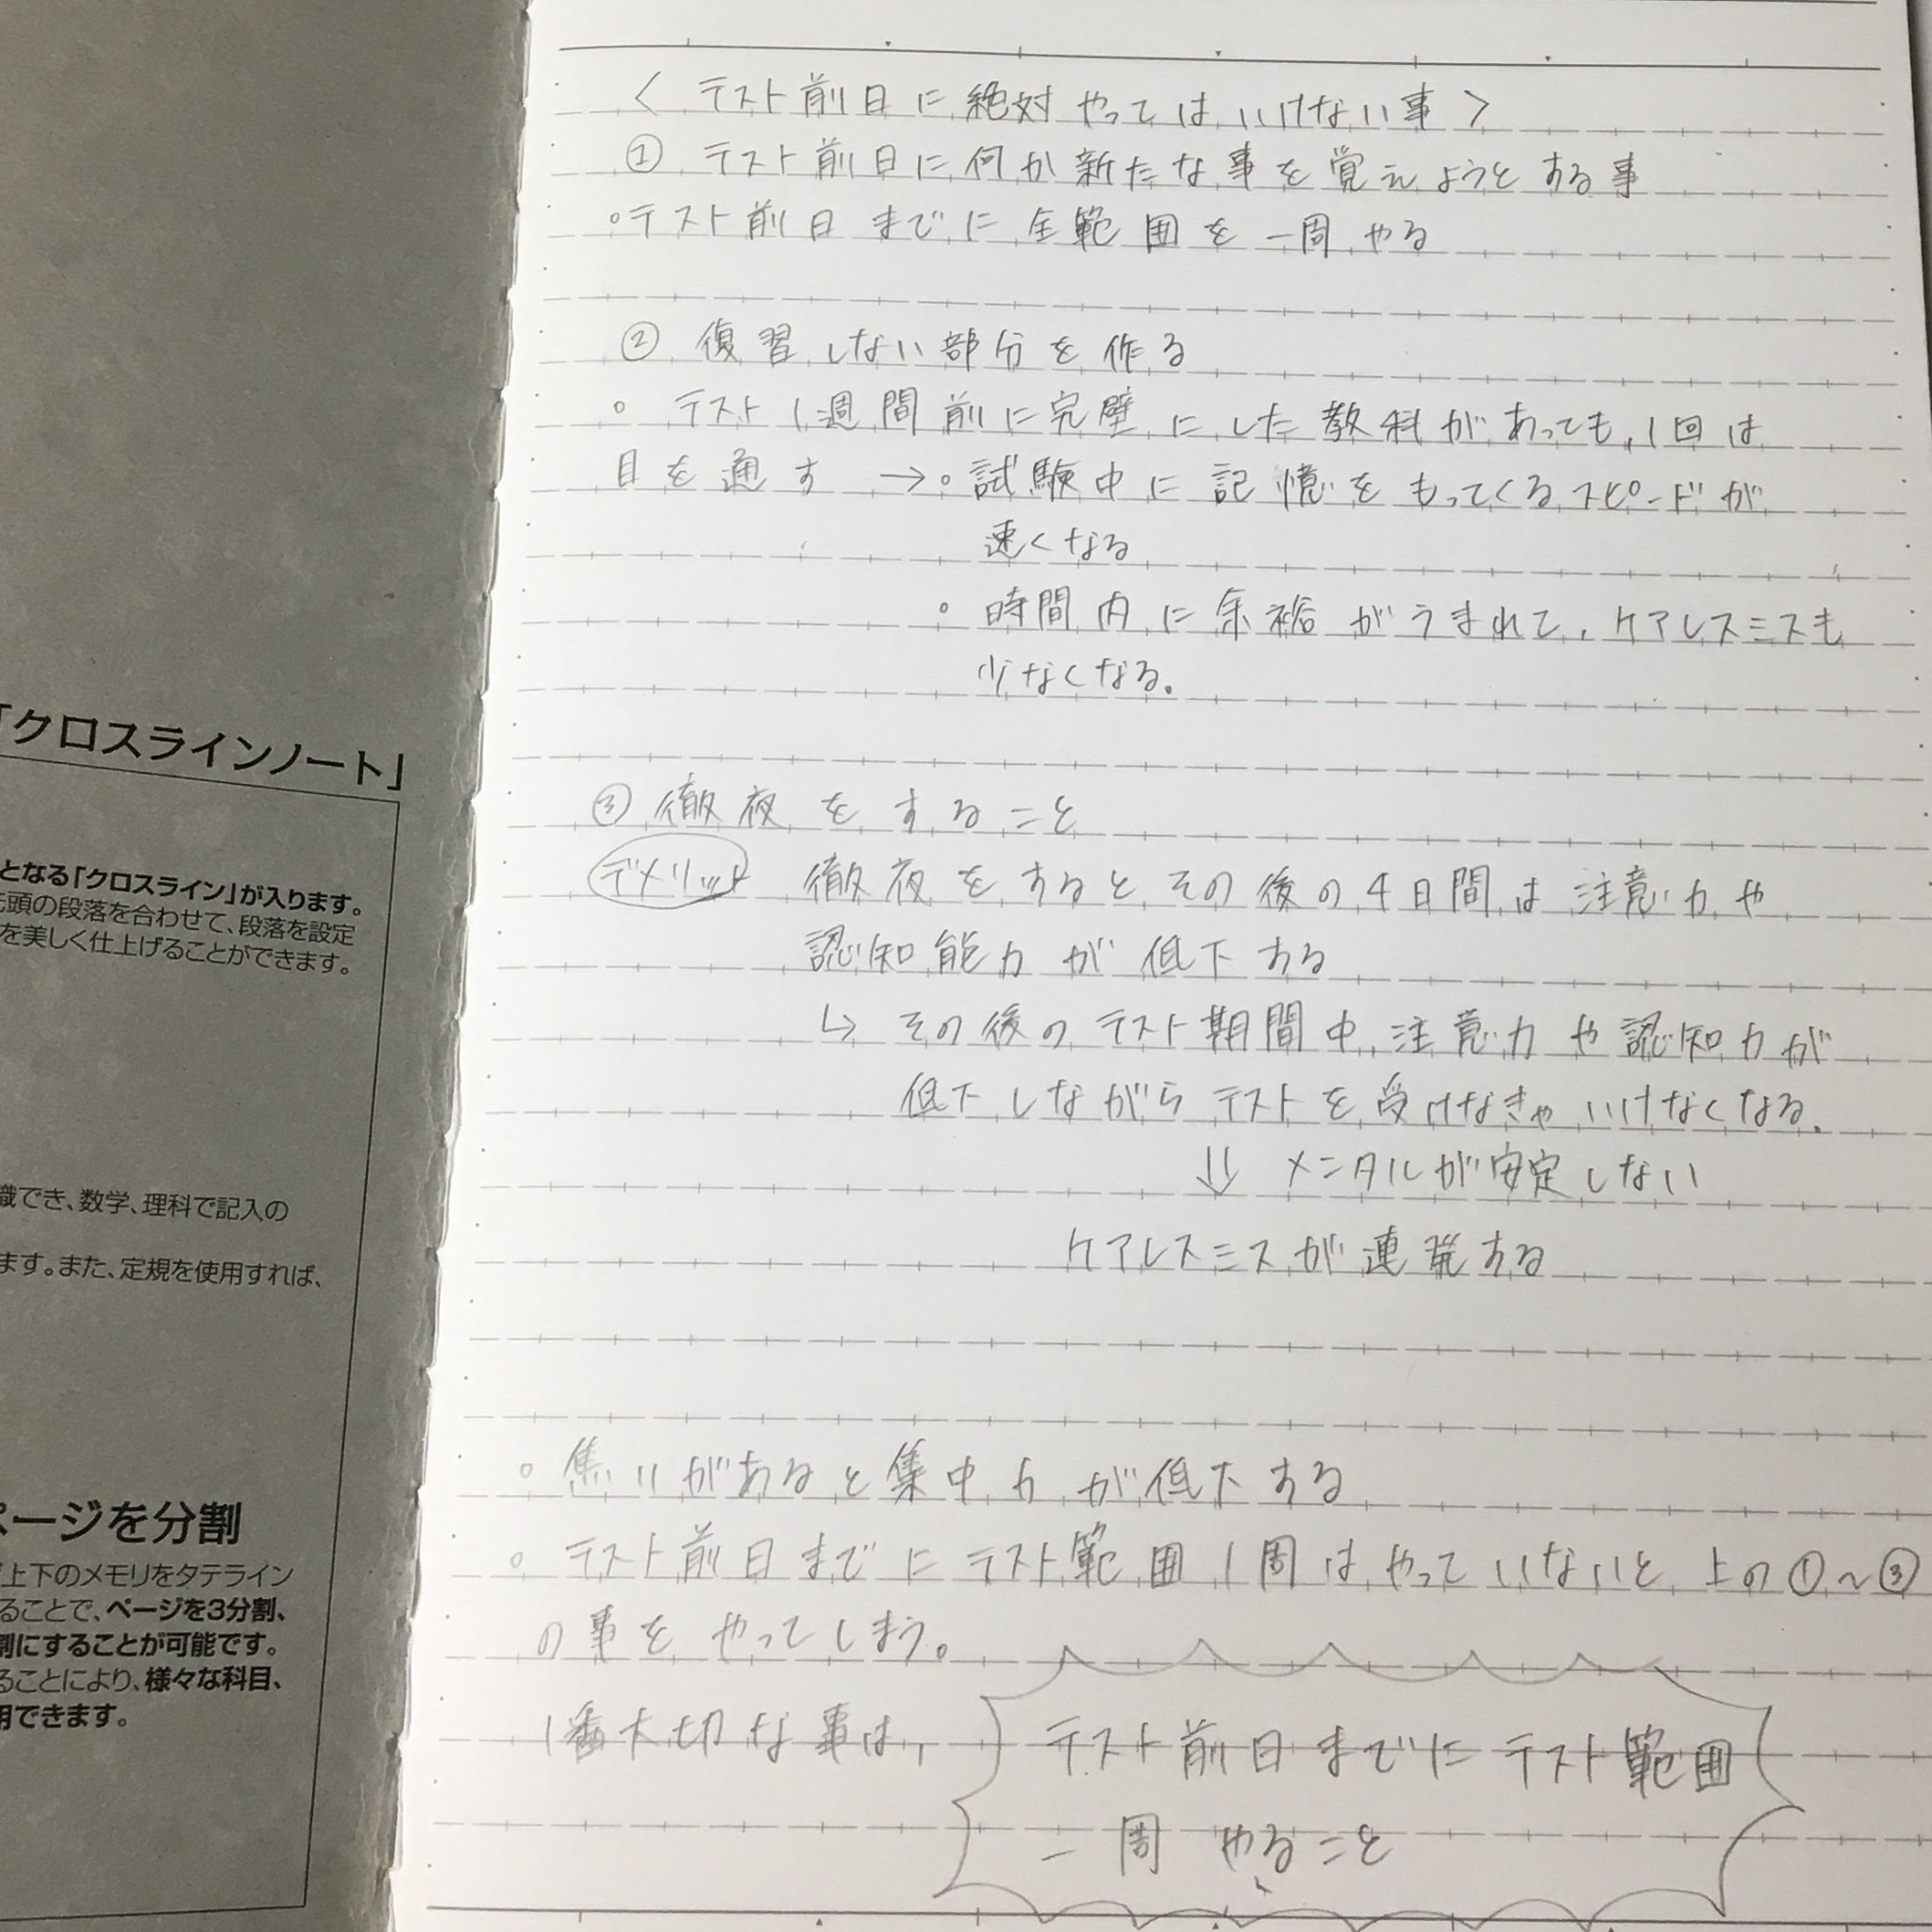 「クロスラインノート」
となる「クロスライン」が入ります。
先頭の段落を合わせて、段落を設定
を美しく仕上げることができます。
識でき、数学、理科で記入の
ます。また、定規を使用すれば、
ページを分割
上下のメモリをタテライン
ることで、ページを3分割、
割にすることが可能です。
ることにより、様々な科目、
用できます。
〈 テスト前日に絶対やってはいけない事 〉
① テスト前日に何か新たな事を覚えようとする事
○テスト前日までに全範囲を一周やる
② 復習しない部分を作る
○ テスト1週間前に完璧にした教科があっても、1回は
目を通す →○試験中に記憶をもってくるスピードが
速くなる
○ 時間内に余裕がうまれて、ケアレスミスも
少なくなる。
③ 徹夜をすること
デメリット 徹夜をするとその後の4日間は注意力や
認知能力が低下する
↳ その後のテスト期間中、注意力や認知力が
低下しながらテストを受けなきゃいけなくなる。
↓↓ メンタルが安定しない
ケアレスミスが連発する
○ 焦りがあると集中力が低下する
○ テスト前日までにテスト範囲1周はやっていないと、上の①~③
の事をやってしまう。
1番大切な事は、 テスト前日までにテスト範囲
一周やること